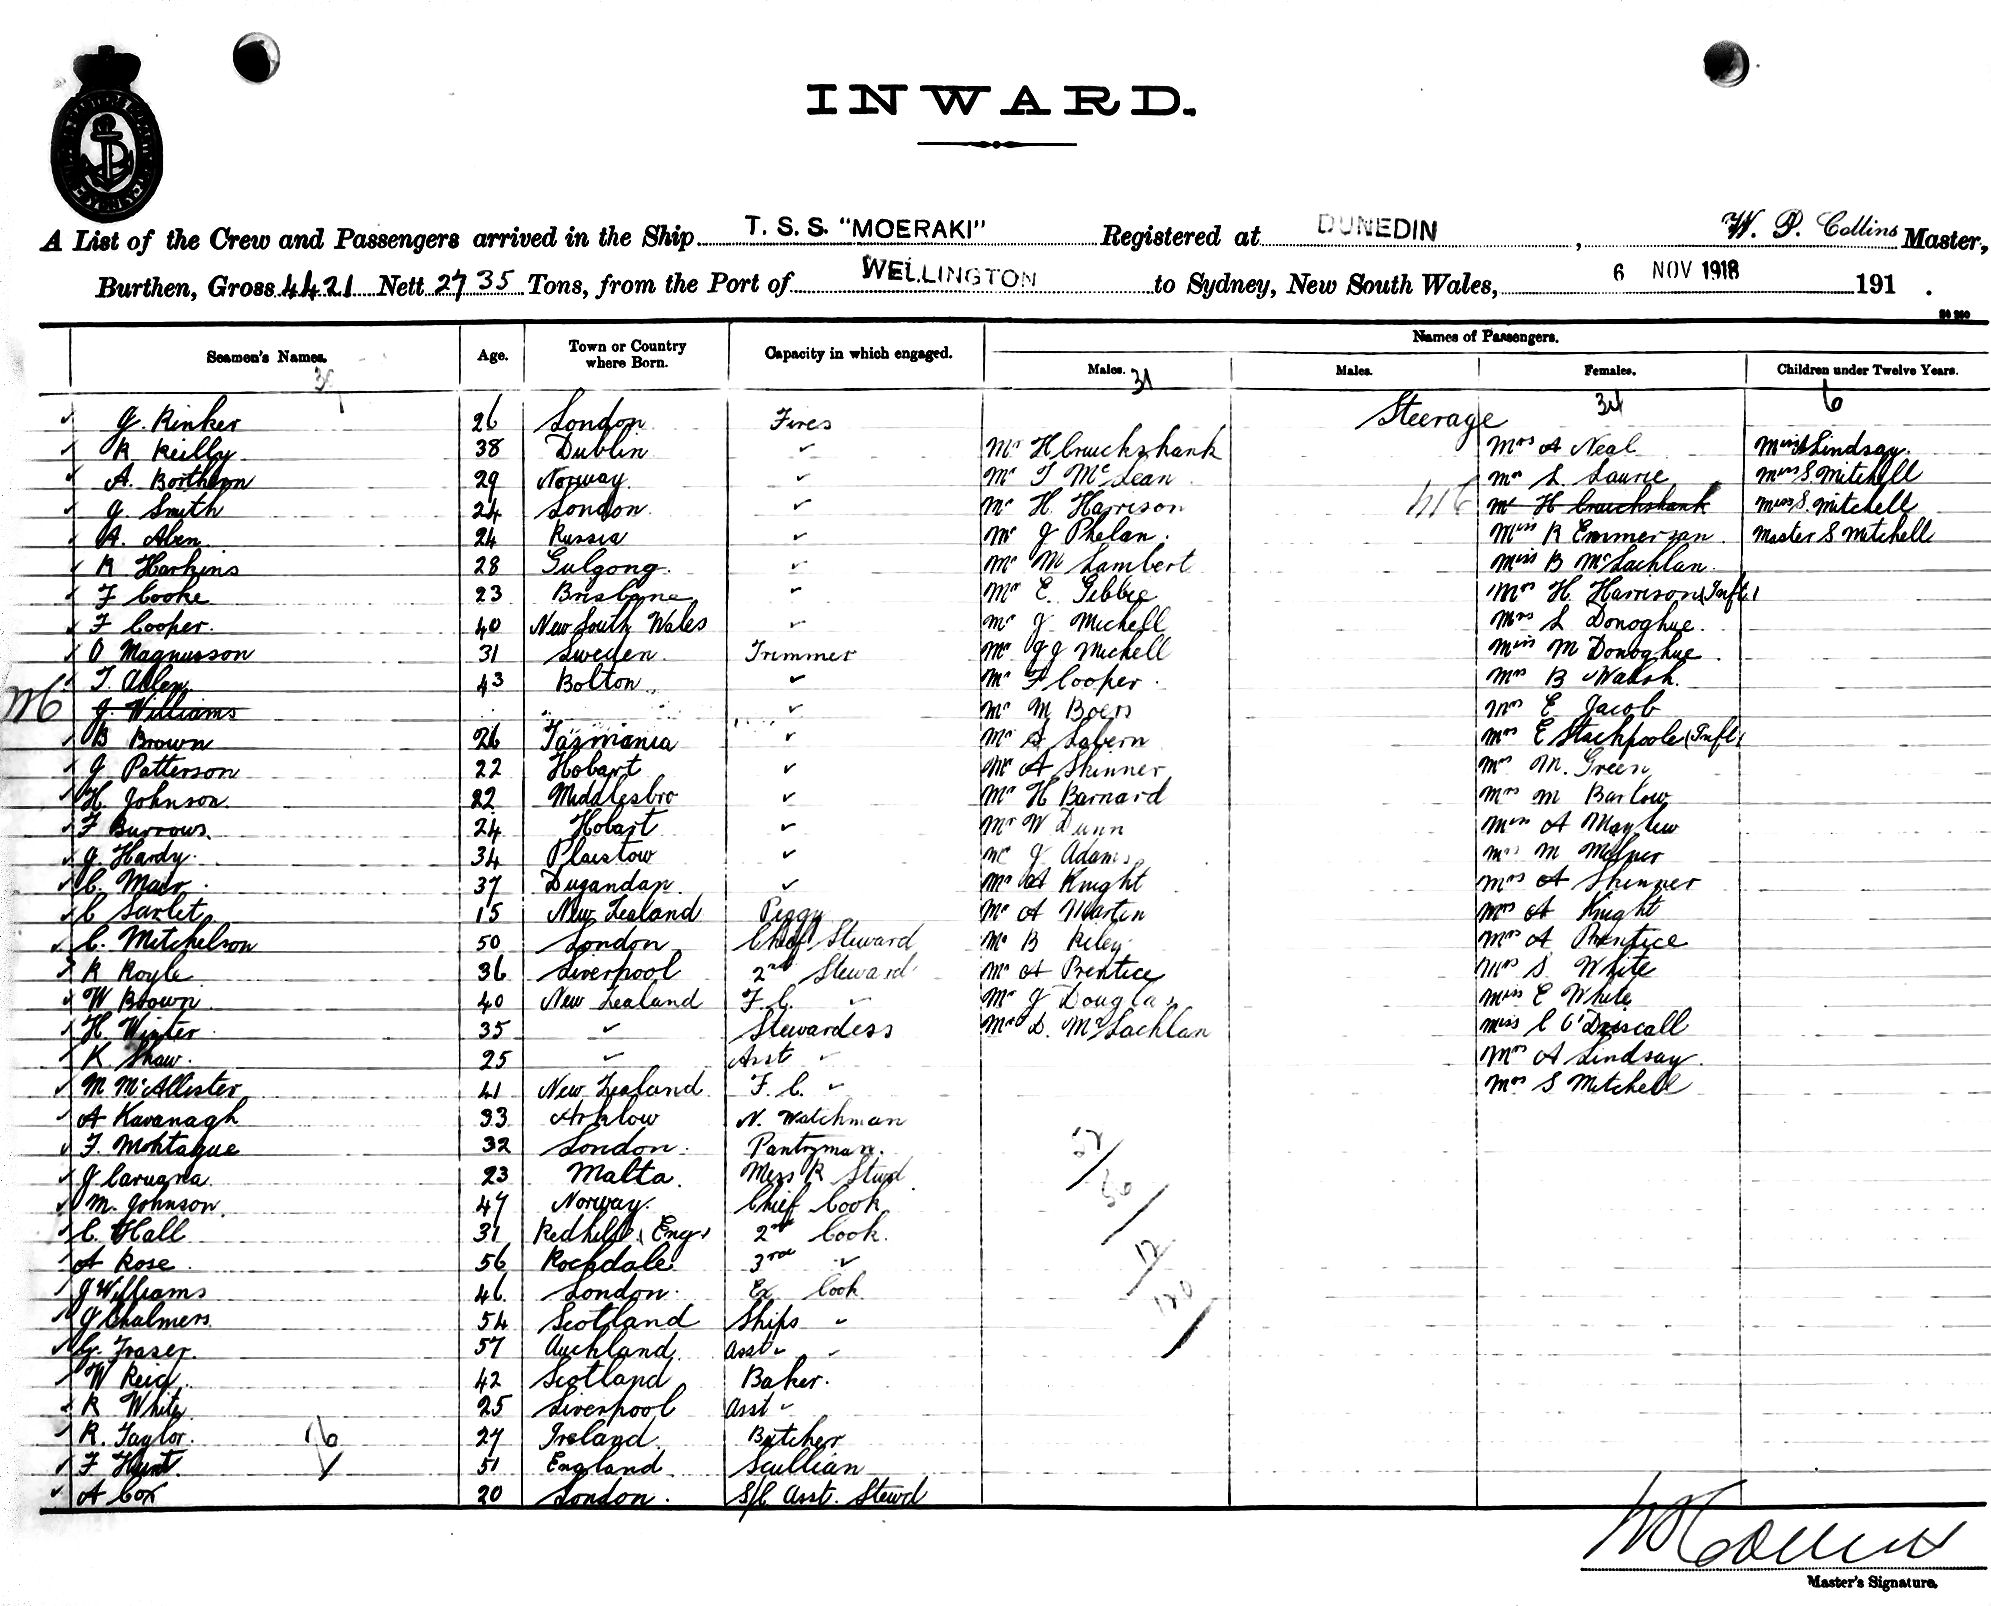 INWARD.
A List of the Crew and Passengers arrived in the Ship T. S. S. "MOERAKI" Registered at DUNEDIN, W. P. Collins Master,
Burthen, Gross 4421 Nett 2735 Tons, from the Port of WELLINGTON to Sydney, New South Wales, 6 NOV 1918 191 .
Names of Passengers.
Seamen's Names. Age. Town or Country where Born. Capacity in which engaged. Males. Males. Females. Children under Twelve Years.
31 34 6
J. Rinker 26 London Fires Steerage
R Reilly 38 Dublin " Mr H Cruickshank Mrs A Neal Miss Lindsay
A. Borthern 29 Norway " Mr T McLean Mrs L Laurie Miss S. Mitchell
J. Smith 24 London " Mr H. Harrison Mr H Cruickshank Miss S. Mitchell
A. Aben 24 Russia " Mr J Phelan Miss R Emmerson Master S Mitchell
R Harkins 28 Gulgong " Mr M Lambert Miss B McLachlan
F Cooke 23 Brisbane " Mr E. Gebbie Mrs H Harrison (Inft)
F Cooper 40 New South Wales " Mr J Michell Mrs L Donoghue
O Magnusson 31 Sweden Trimmer Mr JJ Michell Miss M Donoghue
T. Allen 43 Bolton " Mr F Cooper Mrs B Walsh
J. Williams " Mr M Boers Mrs E Jacob
B Brown 26 Tasmania " Mr S Labern Mrs E Stackpoole (Inft)
J Patterson 22 Hobart " Mr A Skinner Mrs M. Green
H Johnson 22 Middlesbro " Mr H Barnard Mrs M Barlow
F Burrows 24 Hobart " Mr W Dunn Miss A Mayhew
J. Hardy 34 Plaistow " Mr J Adams Mrs M
C. Mair 37 Dugandan " Mr A Knight Mrs A Skinner
C Sarlet 15 New Zealand Peggy Mr A Martin Mrs A Knight
C. Mitchelson 50 London Chief Steward Mr B Riley Mrs A Prentice
R Royle 36 Liverpool 2nd Steward Mr A Prentice Mrs S White
W Brown 40 New Zealand F. C. " Mr J Douglas Miss E White
H Winter 35 " Stewardess Mr D. McLachlan Miss C O'Driscall
K Shaw 25 " Asst " Mrs A Lindsay
M McAllister 41 New Zealand F. C. " Mrs S Mitchell
A Kavanagh 33 Arklow N. Watchman
F. Montague 32 London Pantryman.
J Caruana 23 Malta Mess R Stwd
M. Johnson 47 Norway Chief Cook
C. Hall 31 Redhill (Eng) 2nd Cook
A Rose 56 Rochdale 3rd "
J Williams 46 London Ex Cook
J Chalmers 54 Scotland Ships "
G. Fraser 57 Auckland Asst " "
W Reid 42 Scotland Baker.
R White 25 Liverpool Asst "
R. Taylor 27 Ireland Butcher
F Hunt 51 England Scullian
A Cox 20 London S/C Asst. Stewd
W P Collins
Master's Signature.